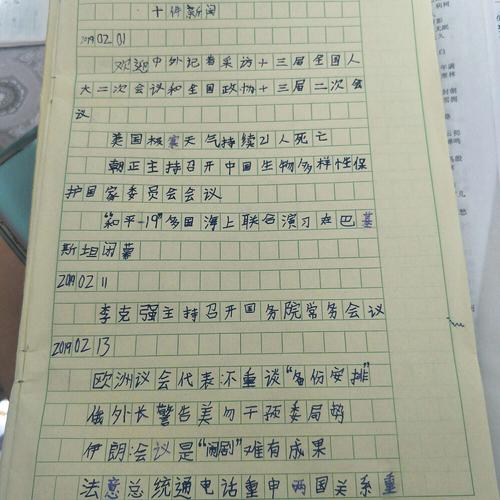 十件新闻
2019 02 01
欢迎中外记者采访十三届全国人
大二次会议和全国政协十三届二次会
议
美国极寒天气持续21人死亡
朝正主持召开中国生物多样性保
护国家委员会会议
“和平-19”多国海上联合演习在巴基
斯坦闭幕
2019 02 11
李克强主持召开国务院常务会议
2019 02 13
欧洲议会代表:不重谈“备份安排”
俄外长警告美勿干预委局势
伊朗:会议是“闹剧”难有成果
法意总统通电话重申两国关系重